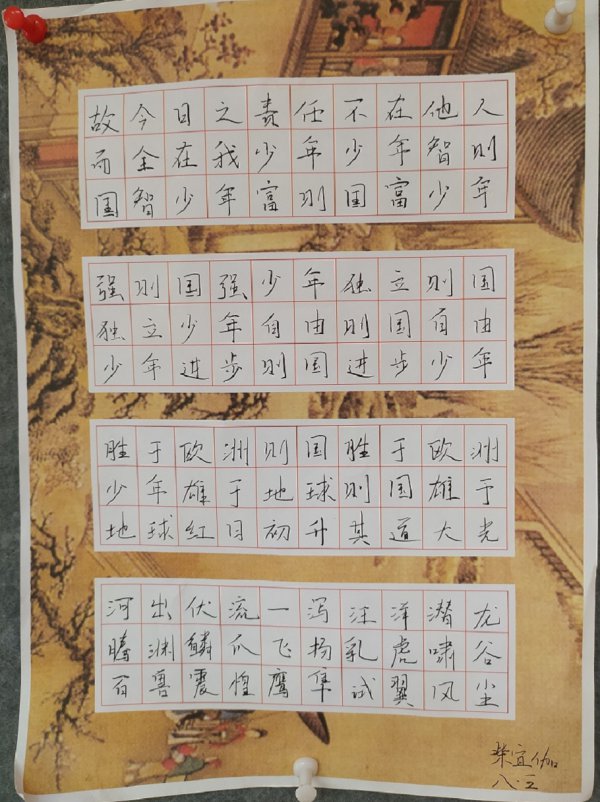 故今日之责任不在他人
而全在我少年少年智则
国智少年富则国富少年
强则国强少年独立则国
独立少年自由则国自由
少年进步则国进步少年
胜于欧洲则国胜于欧洲
少年雄于地球则国雄于
地球红日初升其道大光
河出伏流一泻汪洋潜龙
腾渊鳞爪飞扬乳虎啸谷
百兽震惶鹰隼试翼风尘
宜伽
八·三